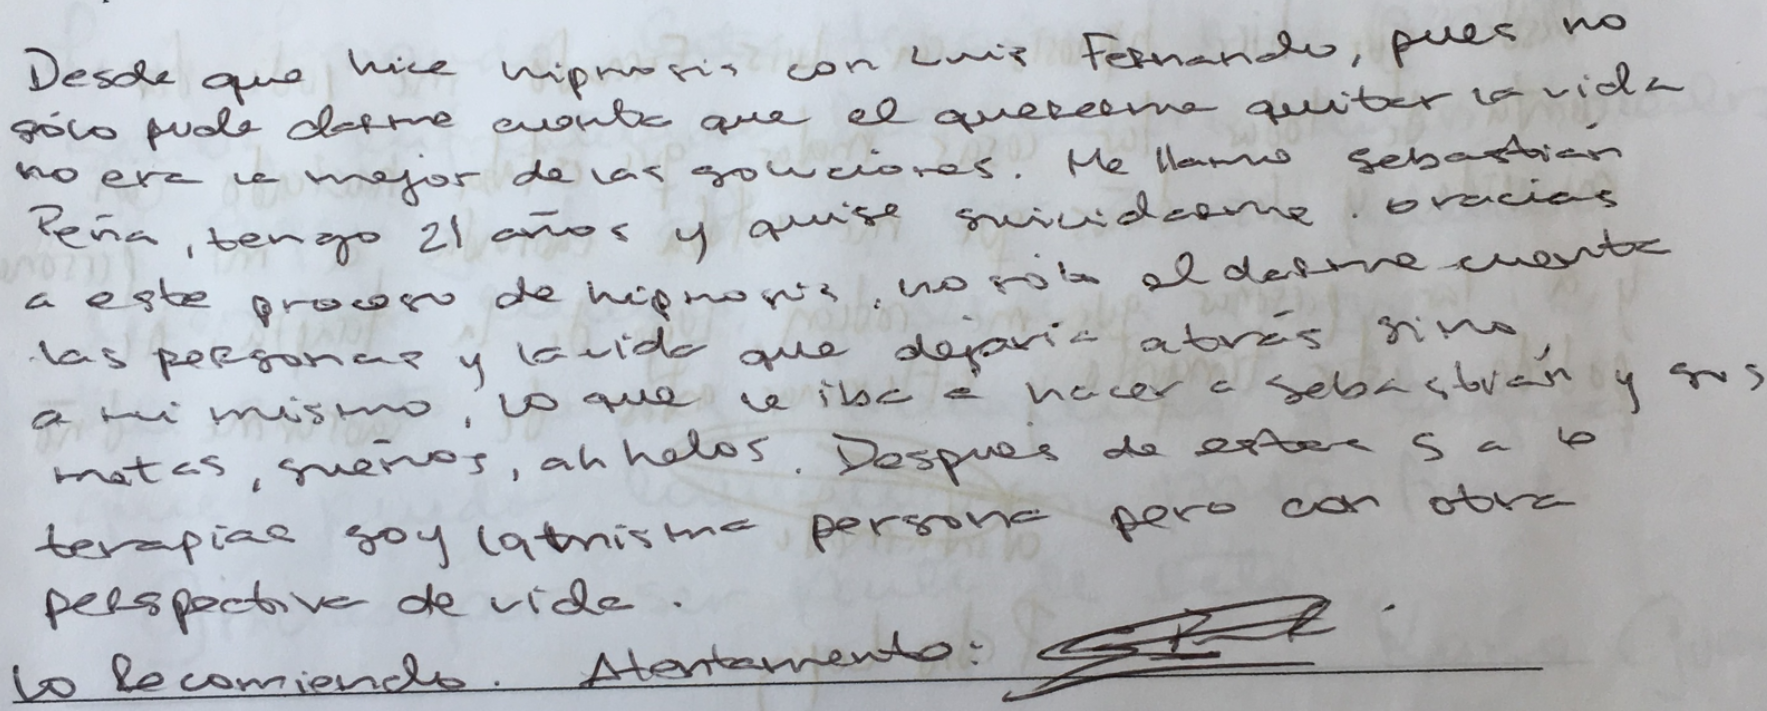 Desde que hice hipnosis con Luis Fernando, pues no
sólo pude darme cuenta que el quererme quitar la vida
no era la mejor de las soluciones. Me llamo Sebastián
Peña, tengo 21 años y quise suicidarme. Gracias
a este proceso de hipnosis, no sólo el darme cuenta
las personas y la vida que dejaría atrás sino,
a mi mismo, lo que le iba a hacer a Sebastián y sus
metas, sueños, ahhelos. Después de estar 5 a 6
terapias soy la misma persona pero con otra
perspectiva de vida.
Lo Recomiendo. Atentamente: